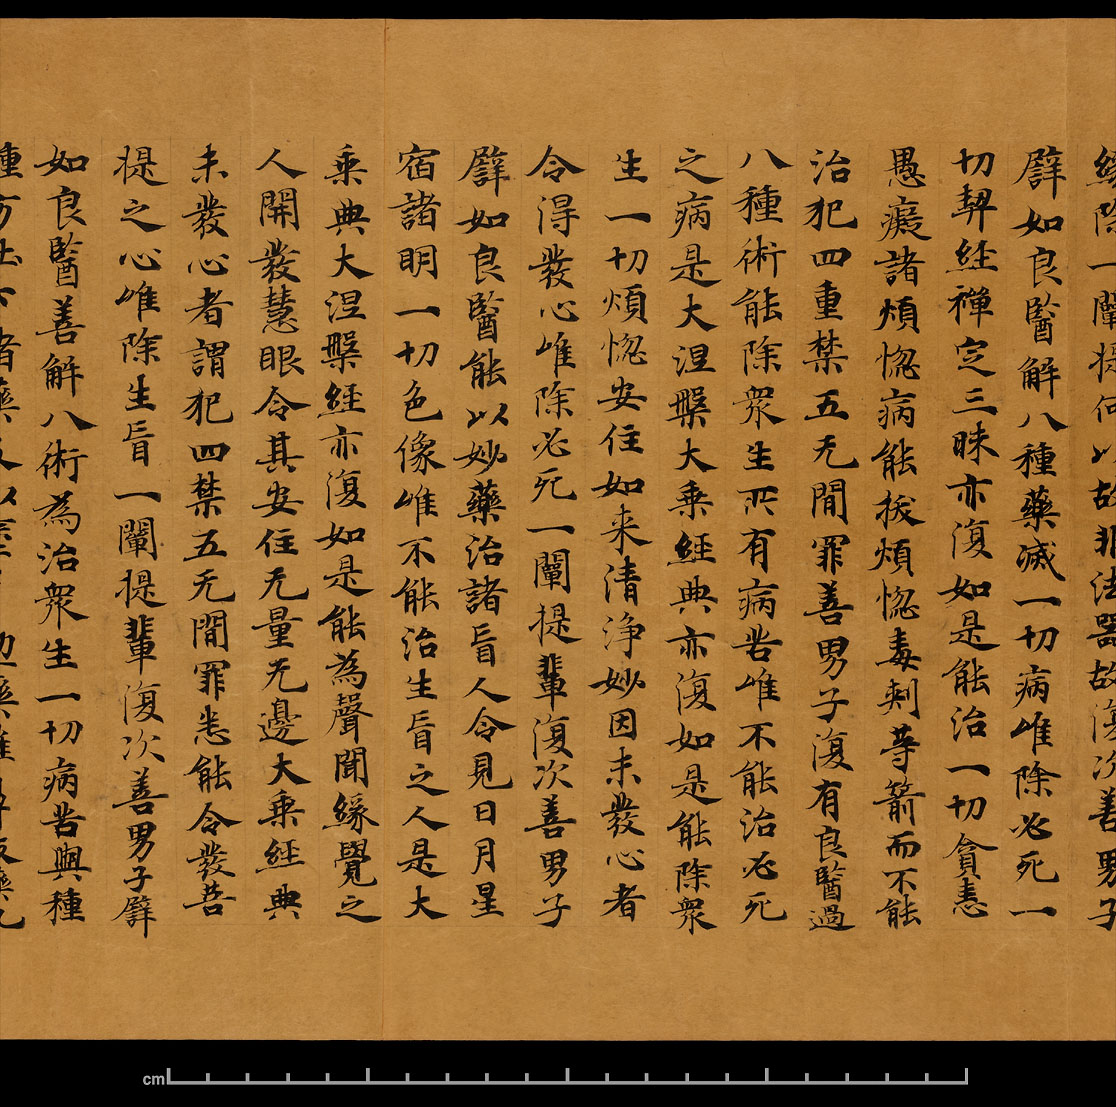 緣除一闡提何以故非法器故復次善男子
譬如良醫解八種藥滅一切病唯除必死一
切契經禪定三昧亦復如是能治一切貪恚
愚癡諸煩惱病能拔煩惱毒刺等箭而不能
治犯四重禁五无間罪善男子復有良醫過
八種術能除眾生所有病苦唯不能治必死
之病是大涅槃大乘經典亦復如是能除眾
生一切煩惱安住如来清淨妙因未發心者
令得發心唯除必死一闡提輩復次善男子
譬如良醫能以妙藥治諸盲人令見日月星
宿諸明一切色像唯不能治生盲之人是大
乘典大涅槃經亦復如是能為聲聞緣覺之
人開發慧眼令其安住无量无邊大乘經典
未發心者謂犯四禁五无間罪悉能令發菩
提之心唯除生盲一闡提輩復次善男子譬
如良醫善解八術為治眾生一切病苦與種
種方吐下諸藥
cm